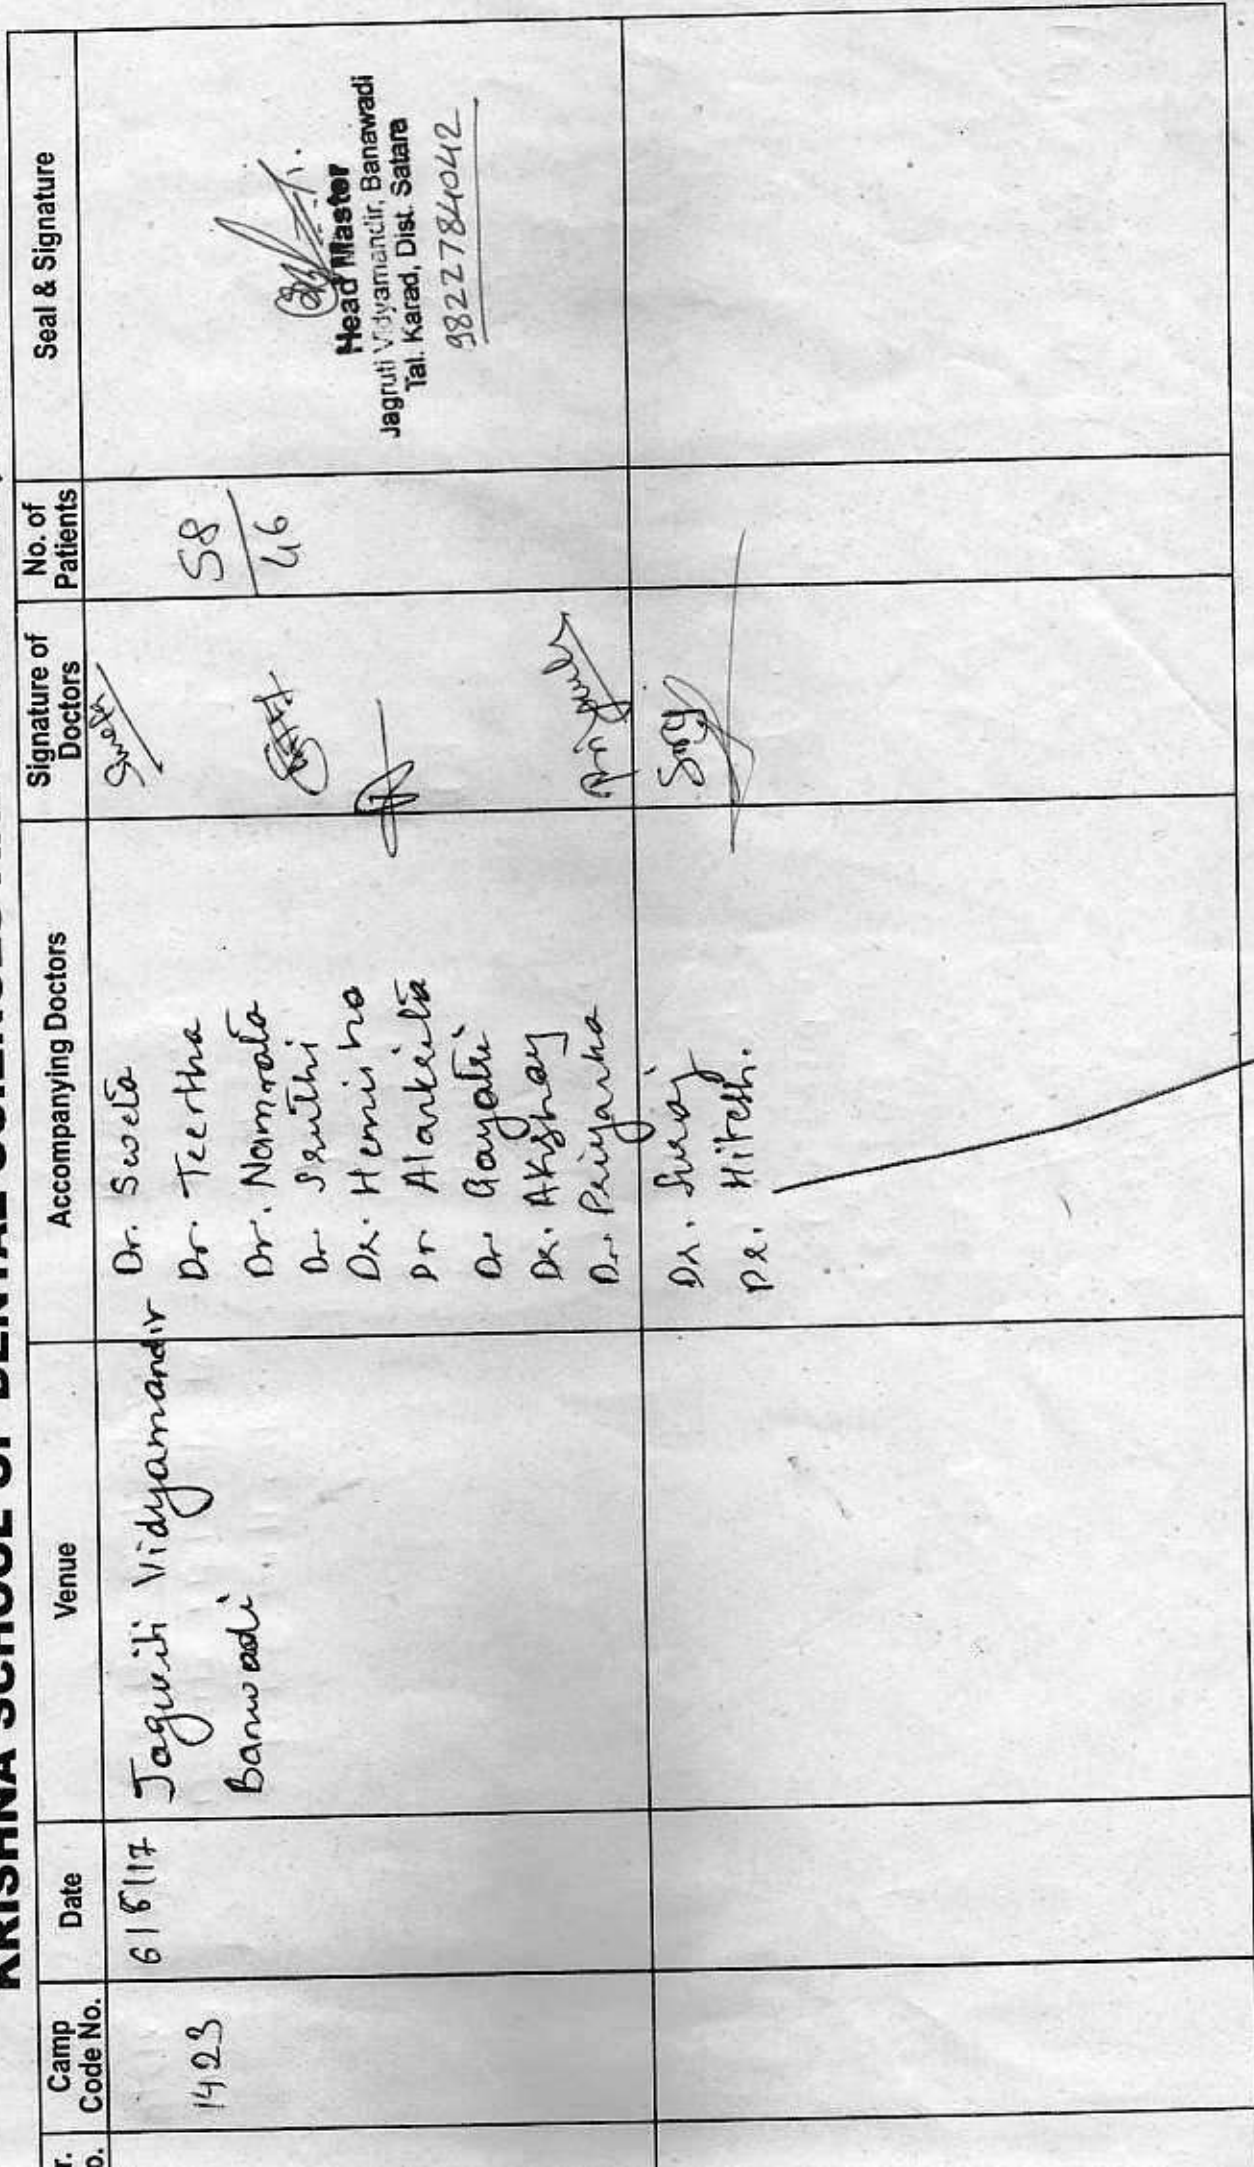 KRISHNA SCHOOL OF DENTAL SCIENCES
Camp Code No.
Date
Venue
Accompanying Doctors
Signature of Doctors
No. of Patients
Seal & Signature
1423
6/8/17
Jagruiti Vidyamandir
Banwadi
Dr. Sweta
Dr. Teertha
Dr. Namrata
Dr Sruthi
Dr. Hemisha
Dr. Alankrita
Dr. Gayatri
Dr. Akshay
Dr. Priyanka
Dr. Suraj
Dr. Hitesh.
Sweta
58
46
Head Master
Jagruti Vidyamandir, Banawadi
Tal. Karad, Dist. Satara
9822784042